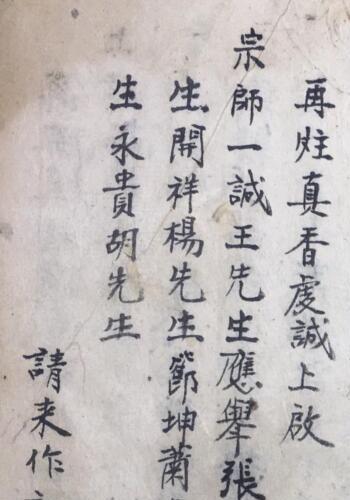 再炷真香虔誠上啟
宗師一誠王先生應舉張
生開祥楊先生節坤蕭
生永貴胡先生
請来作